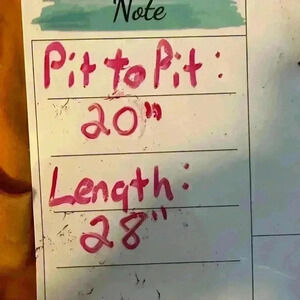 Note
Pit to Pit:
20"
Length:
28"